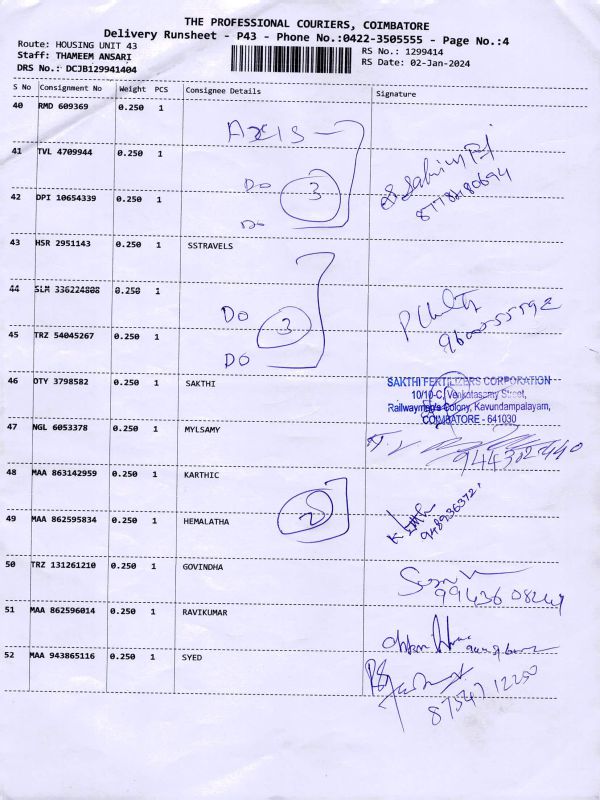 THE PROFESSIONAL COURIERS, COIMBATORE
Delivery Runsheet - P43 - Phone No.:0422-3505555 - Page No.:4
Route: HOUSING UNIT 43
RS No.: 1299414
Staff: THAMEEM ANSARI
RS Date: 02-Jan-2024
DRS No.: DCJB129941404
S No Consignment No Weight PCS Consignee Details Signature
40 RMD 609369 0.250 1
AXIS
41 TVL 4709944 0.250 1
DO 3
42 DPI 10654339 0.250 1
DO
8778480694
43 HSR 2951143 0.250 1 SSTRAVELS
44 SLM 336224808 0.250 1
DO 3
9600555592
45 TRZ 54045267 0.250 1
DO
46 OTY 3798582 0.250 1 SAKTHI
SAKTHI FERTILIZERS CORPORATION
10/10-C, Venkatasamy Street,
Railwaymen's Colony, Kavundampalayam,
COIMBATORE - 641030
47 NGL 6053378 0.250 1 MYLSAMY
48 MAA 863142959 0.250 1 KARTHIC
2
49 MAA 862595834 0.250 1 HEMALATHA
50 TRZ 131261210 0.250 1 GOVINDHA
51 MAA 862596014 0.250 1 RAVIKUMAR
52 MAA 943865116 0.250 1 SYED
87547 12250